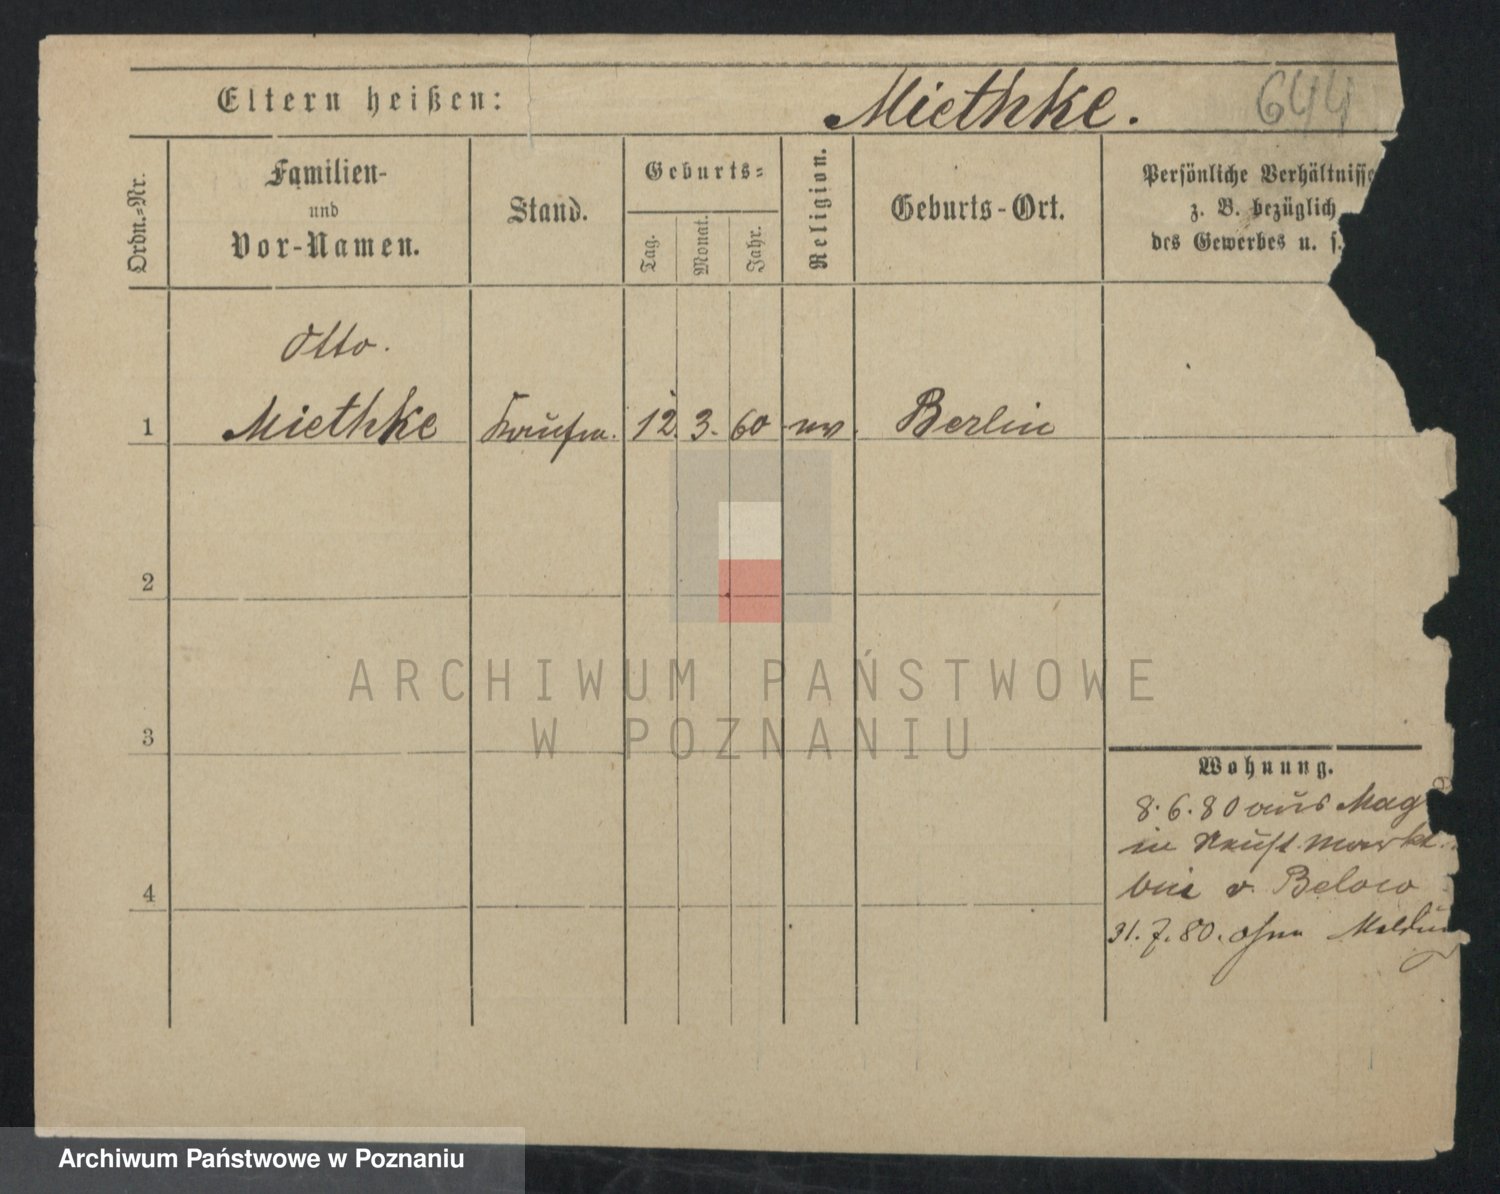 Eltern heißen:
Miethke.
644
Ordn.-Nr.
Familien-
und
Vor-Namen.
Stand.
Geburts-
Tag.
Monat.
Jahr.
Religion.
Geburts-Ort.
Persönliche Verhältnisse
z. B. bezüglich
des Gewerbes u. s.
Otto.
1 Miethke Kaufm. 12. 3. 60 Berlin
2
3
4
Wohnung.
8.6.80 aus Mag
in Neust. Markt
bei v. Below
31.7.80. ohne Meldung
ARCHIWUM PAŃSTWOWE
W POZNANIU
Archiwum Państwowe w Poznaniu